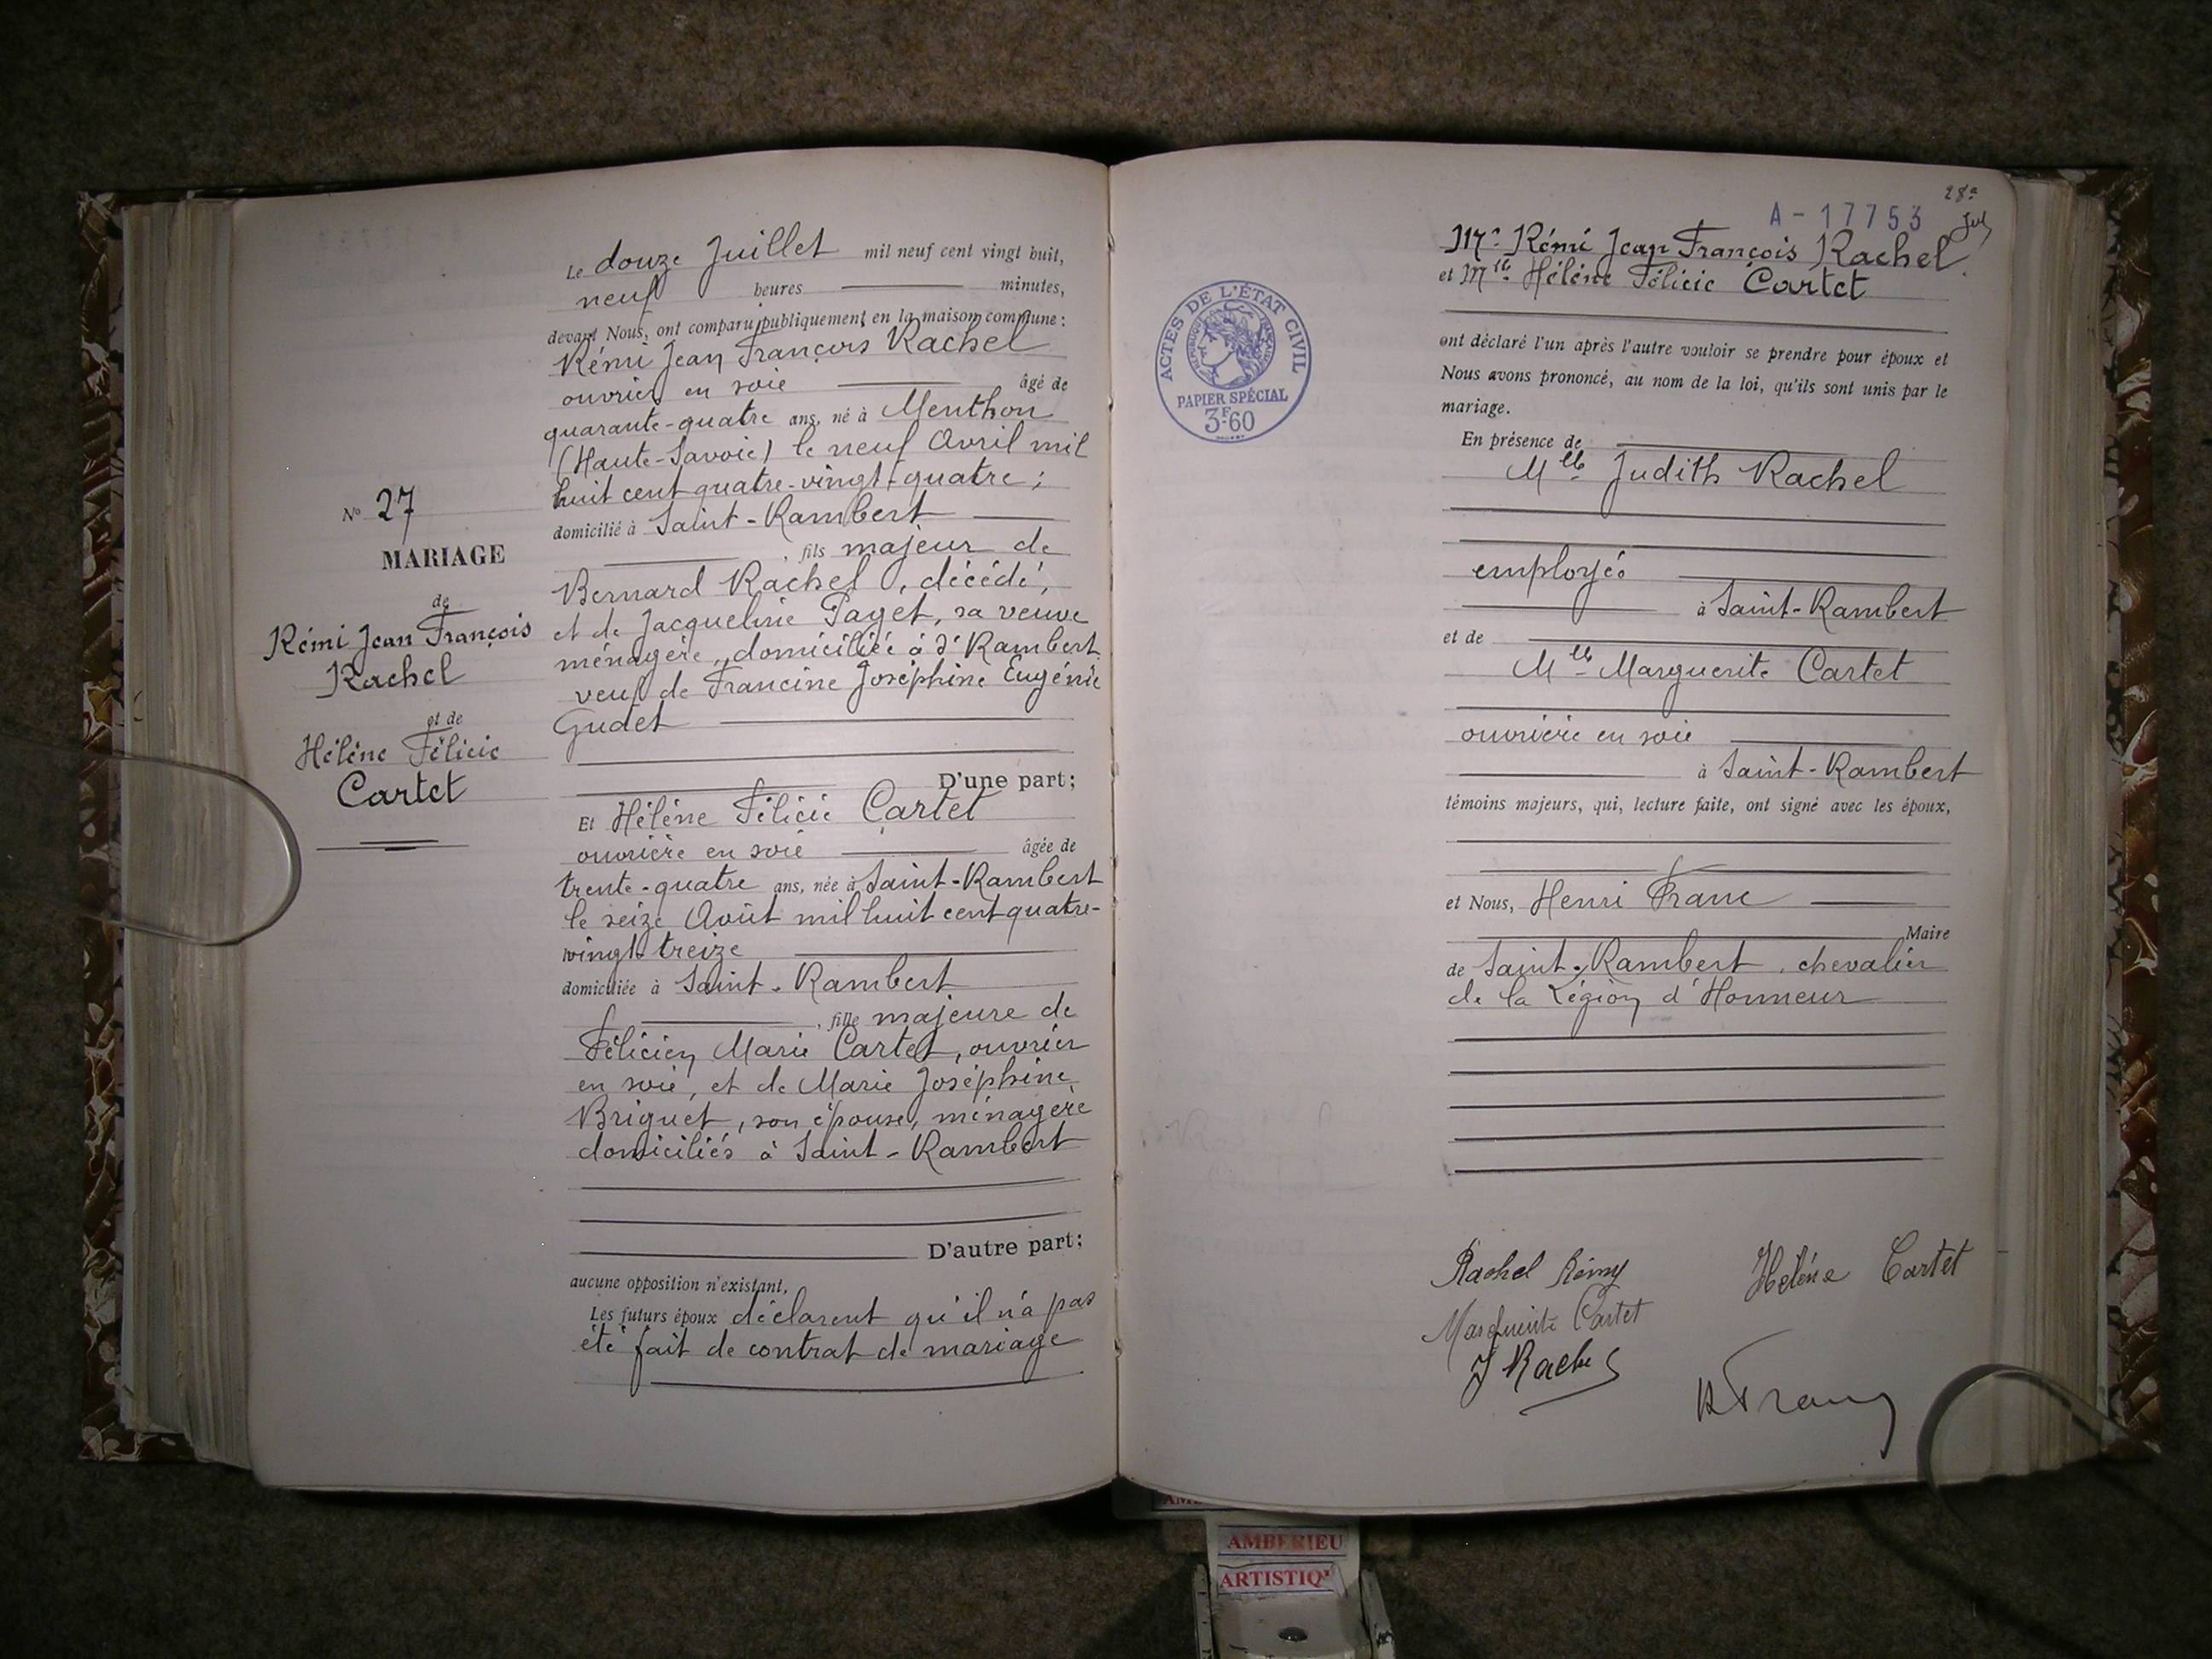 Le douze Juillet mil neuf cent vingt huit,
neuf heures minutes,
devant Nous, ont comparu publiquement en la maison commune :
Rémi Jean François Rachel
ouvrier en soie âgé de
quarante-quatre ans, né à Menthon
(Haute-Savoie) le neuf Avril mil
huit cent quatre-vingt-quatre ;
domicilié à Saint-Rambert
, fils majeur de
Bernard Rachel, décédé,
et de Jacqueline Paget, sa veuve
ménagère, domiciliée à St Rambert
veuf de Francine Joséphine Eugénie
Gudet
D'une part ;
Et Hélène Félicie Cartet
ouvrière en soie âgée de
trente-quatre ans, née à Saint-Rambert
le seize Août mil huit cent quatre-
vingt treize
domiciliée à Saint-Rambert
, fille majeure de
Félicien Marie Cartet, ouvrier
en soie, et de Marie Joséphine
Briguet, son épouse, ménagère
domiciliés à Saint-Rambert
D'autre part ;
aucune opposition n'existant,
Les futurs époux déclarent qu'il n'a pas
été fait de contrat de mariage
No 27
MARIAGE
de
Rémi Jean François
Rachel
et de
Hélène Félicie
Cartet
A-17753
ACTES DE L'ÉTAT CIVIL
RÉPUBLIQUE FRANÇAISE
PAPIER SPÉCIAL
3F60
Mr Rémi Jean François Rachel
et Mlle Hélène Félicie Cartet
ont déclaré l'un après l'autre vouloir se prendre pour époux et
Nous avons prononcé, au nom de la loi, qu'ils sont unis par le
mariage.
En présence de
Mlle Judith Rachel
employée
à Saint-Rambert
et de
Mlle Marguerite Cartet
ouvrière en soie
à Saint-Rambert
témoins majeurs, qui, lecture faite, ont signé avec les époux,
et Nous, Henri Franc
Maire
de Saint-Rambert, chevalier
de la Légion d'Honneur
Rachel Rémy Hélène Cartet
Marguerite Cartet
J Rachel
H Franc
AMBERIEU
ARTISTIQ